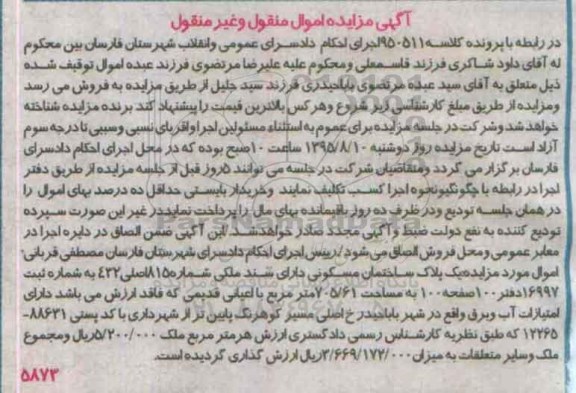 آگهی مزایده اموال منقول وغیر منقول
در رابطه با پرونده کلاسه۹۵۰۵۱۱اجرای احکام دادسرای عمومی وانقلاب شهرستان فارسان بین محکوم
له آقای داود شاکری فرزند قاسمعلی ومحکوم علیه علیرضا مرتضوی فرزند عبده اموال توقیف شده
ذیل متعلق به آقای سید عبده مرتضوی باباحیدری فرزند سید جلیل از طریق مزایده به فروش می رسد
ومزایده از طریق مبلغ کارشناسی زیر شروع وهر کس بالاترین قیمت را پیشنهاد کند برنده مزایده شناخته
خواهد شد وشرکت در جلسه مزایده برای عموم به استثناء مسئولین اجرا واقربای نسبی وسببی تا درجه سوم
آزاد است تاریخ مزایده روز دوشنبه ۱۳۹۵/۸/۱۰ ساعت ۱۰صبح بوده که در محل اجرای احکام دادسرای
فارسان برگزار می گردد ومتقاضیان شرکت در جلسه می توانند ۵روز قبل از جلسه مزایده از طریق دفتر
اجرا در رابطه با چگونگی ونحوه اجرا کسب تکلیف نمایند وخریدار بایستی حداقل ده درصد بهای اموال را
در همان جلسه تودیع ودر ظرف ده روز باقیمانده بهای مال را پرداخت نماید در غیر این صورت سپرده
تودیع کننده به نفع دولت ضبط وآگهی مجدد صادر خواهد شد این آگهی ضمن الصاق در دایره اجرا در
معابر عمومی ومحل فروش الصاق می شود/رییس اجرای احکام دادسرای شهرستان فارسان مصطفی قربانی-
اموال مورد مزایده یک پلاک ساختمان مسکونی دارای سند ملکی شماره۸۱۵اصلی۴۳۲ به شماره ثبت
۱۶۹۹۷دفتر۱۰۰صفحه۱۰۰ به مساحت ۷۰۵/۶۱متر مربع با اعیانی قدیمی که فاقد ارزش می باشد دارای
امتیازات آب وبرق واقع در شهر باباحیدر خ اصلی مسیر کوهرنگ پایین تر از شهرداری با کد پستی ۸۸۶۳۱-
۱۲۲۶۵ که طبق نظریه کارشناس رسمی دادگستری ارزش هرمتر مربع ملک ۵/۲۰۰/۰۰۰ریال ومجموع
ملک وسایر متعلقات به میزان۳/۶۶۹/۱۷۲/۰۰۰ریال ارزش گذاری گردیده است.
۵۸۷۳